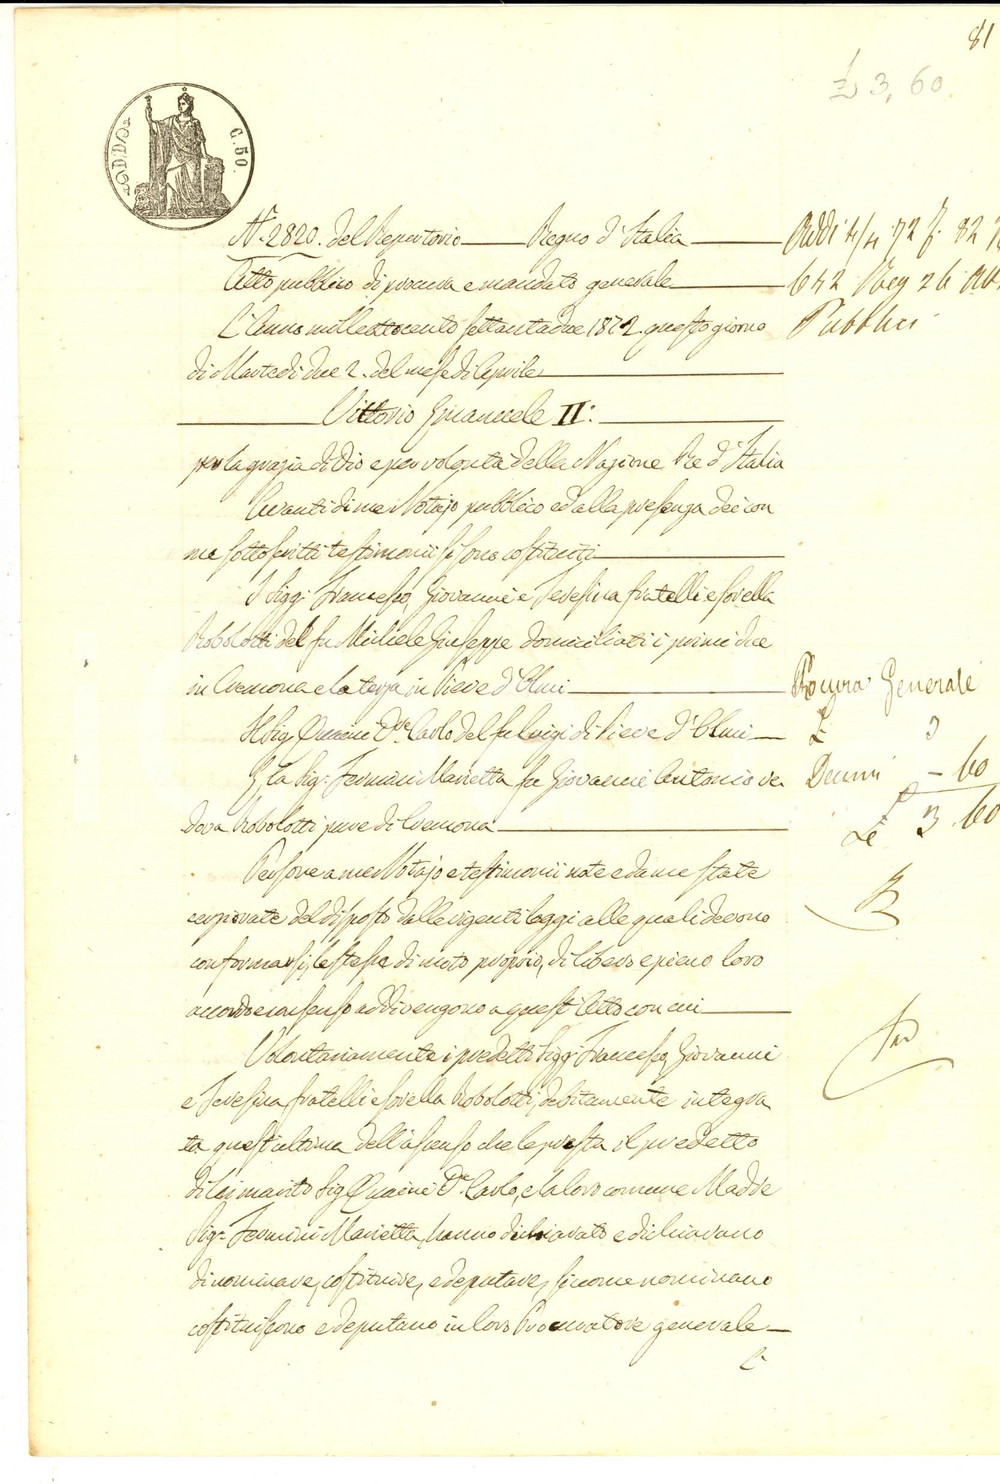 81
£ 3, 60
C. 50.
N. 2820. del Repertorio Regno d'Italia
Atto pubblico di procura e mandato generale
L'Anno mille ottocento settantadue 1872. questo giorno
di Martedì due 2. del mese di Aprile
Vittorio Emanuele II:
per la grazia di Dio e per volontà della Nazione Re d'Italia
Avanti di me Notajo pubblico ed alla presenza dei con
me sottoscritti testimonii si sono costituiti
I Sigg. Francesco, Giovanni e Teresina fratelli e sorella
Robolotti del fu Michele Giuseppe domiciliati i primi due
in Cremona e la terza in Pieve d'Olmi
Il Sig. Quaini Dre. Carlo del fu Luigi di Pieve d'Olmi
E la Sig. Fermini Marietta fu Giovanni Antonio ve
dova Robolotti pure di Cremona
Persone a me Notajo e testimonii note e da me state
cerziorate del disposto dalle vigenti leggi alle quali devono
conformarsi, le stesse di moto proprio, di libero e pieno loro
accordo e consenso addivengono a quest'Atto con cui
Volontariamente i predetti Sigg. Francesco, Giovanni
e Teresina fratelli e sorella Robolotti, debitamente integra
ta quest'ultima dell'assenso che le presta il predetto
di lei marito Sig. Quaini Dr. Carlo, e la loro comune Madre
Sig. Fermini Marietta, hanno dichiarato e dichiarano
di nominare, costituire, e deputare, siccome nominano
costituiscono e deputano in loro Procuratore generale
Addì 4/4 72 f. 82 N
642 Reg 26 Atti
Pubblici
Procura Generale
£ 3
Decimi – 60
£ 3 60